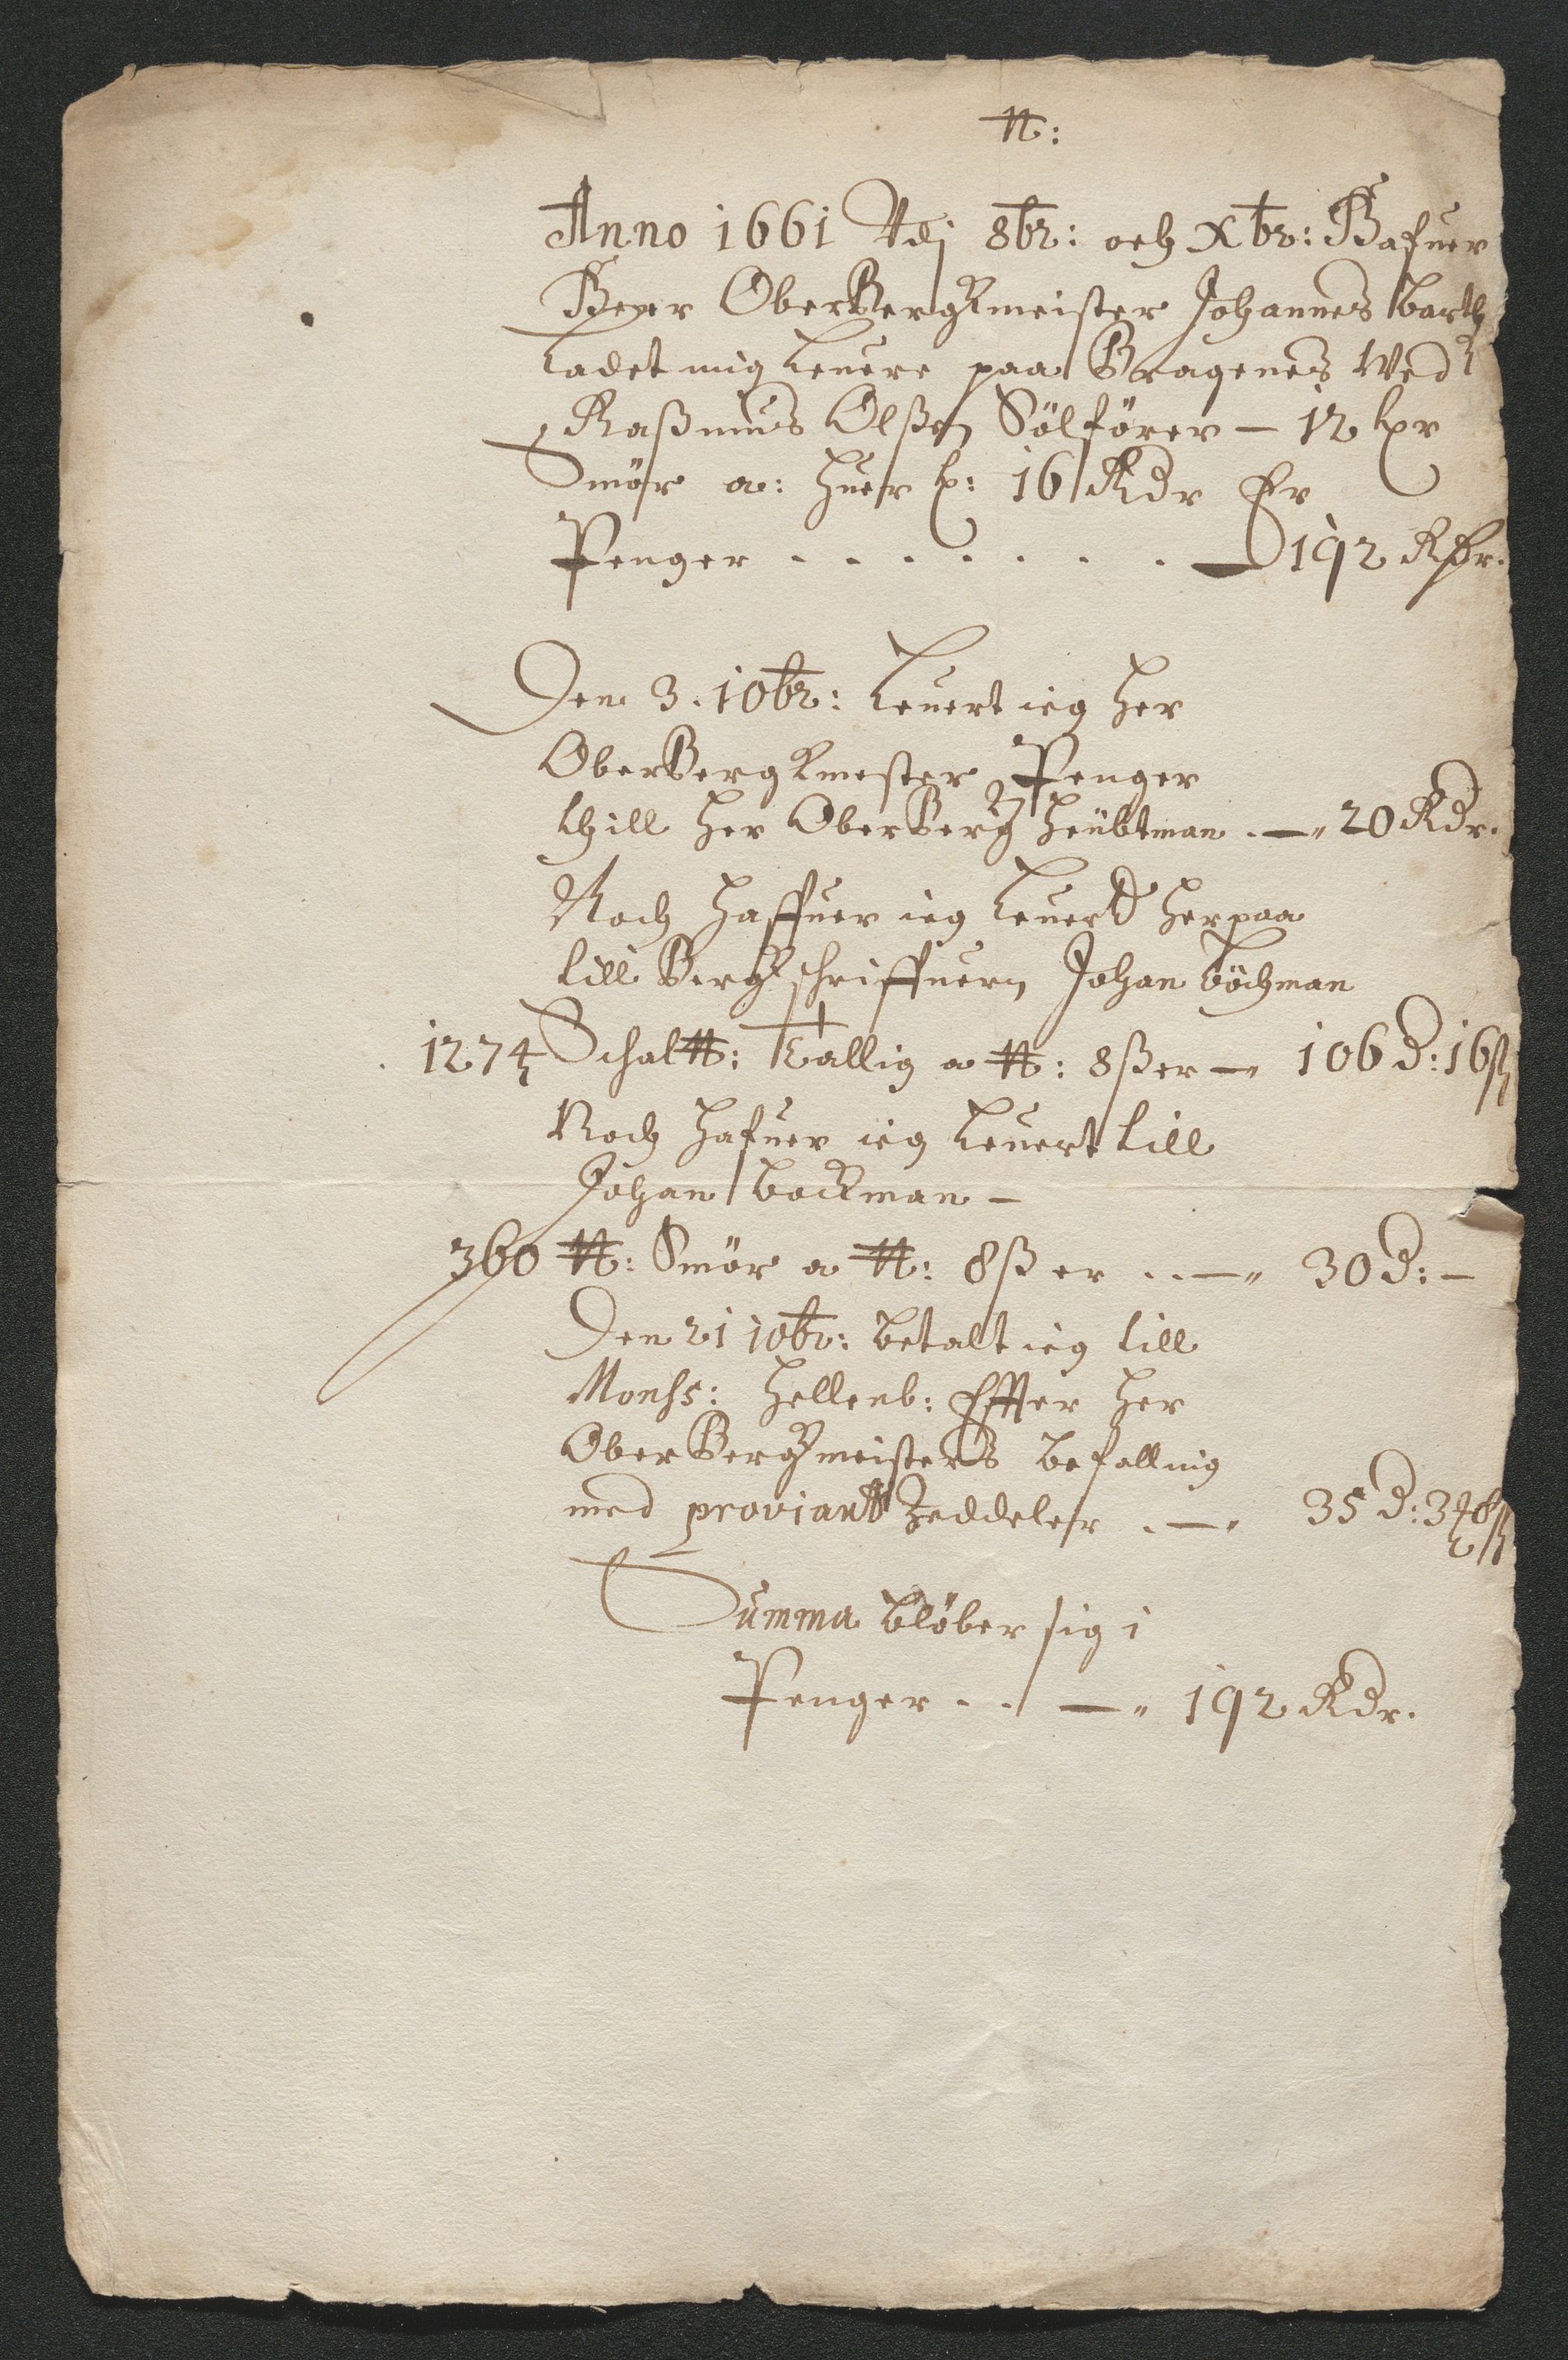 ₶:
Anno 1661 Adj 8br: och Xbr: Hafuer
Herr OberBergkmeister Johannes Barth
Ladet mig Leuere paa Bragenes Wed
Raßmus Olßen Sölförer — 12
Smör a: huer 16 Rdr Er
Penger . . . . . . . — 192 Rdr.
Den 3. 10br: Leuert ieg Her
OberBergkmester Penger
thill Her OberBerg Heübtman . — 20 Rdr.
Noch Haffuer ieg Leuert Herpaa
till Bergschriffuern Johan Böchman
1274 Schal ₶: Tallig a ₶: 8 ß er — 106 d: 16 ß
Noch Hafuer ieg Leuert till
Johan Bockman —
360 ₶: Smör a ₶: 8 ß er . . — 30 d: —
Den 21 10br: Betalt ieg till
Monss: Hellenb: Effter Her
OberBergmeisters Befalling
med proviant Zeddeler . — 35 d:
Summa Blöber sig i
Penger . . — 192 Rdr.